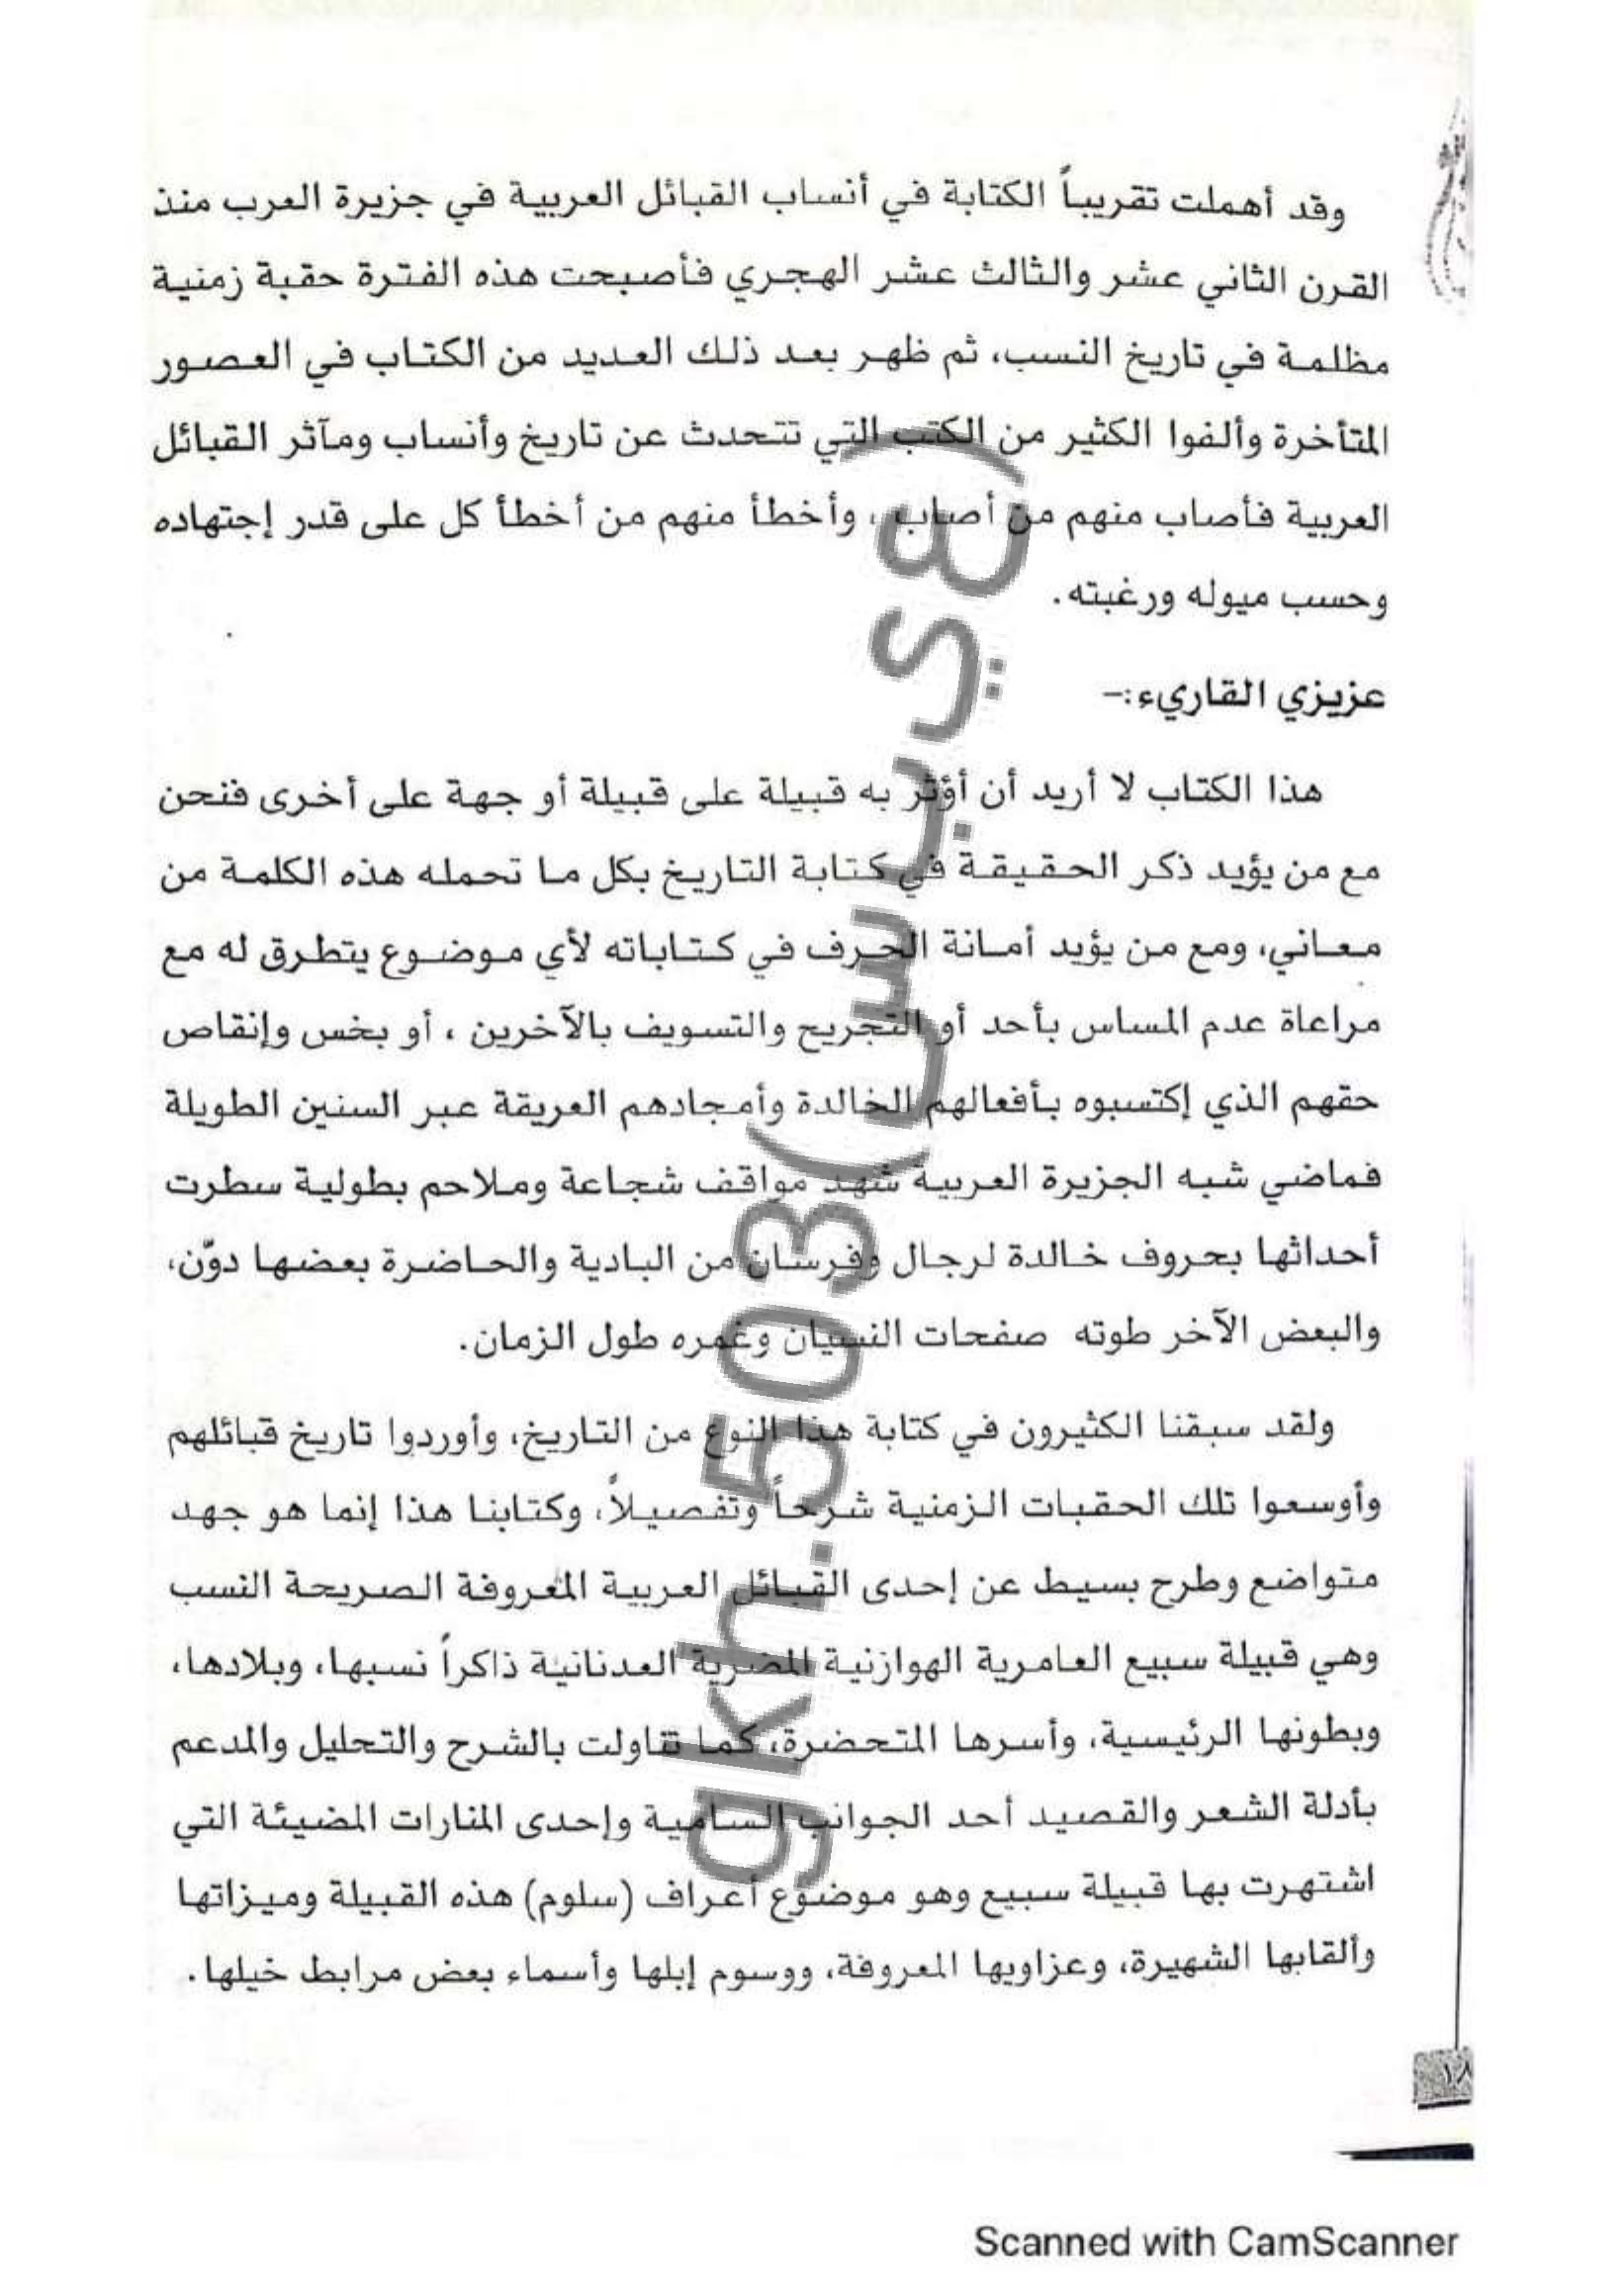 وقد أهملت تقريباً الكتابة في أنساب القبائل العربية في جزيرة العرب منذ
القرن الثاني عشر والثالث عشر الهجري فأصبحت هذه الفترة حقبة زمنية
مظلمة في تاريخ النسب، ثم ظهر بعد ذلك العديد من الكتاب في العصور
المتأخرة وألفوا الكثير من الكتب التي تتحدث عن تاريخ وأنساب ومآثر القبائل
العربية فأصاب منهم من أصاب ، وأخطأ منهم من أخطأ كل على قدر إجتهاده
وحسب ميوله ورغبته.
عزيزي القاريء:-
هذا الكتاب لا أريد أن أؤثر به قبيلة على قبيلة أو جهة على أخرى فنحن
مع من يؤيد ذكر الحقيقة في كتابة التاريخ بكل ما تحمله هذه الكلمة من
معاني، ومع من يؤيد أمانة الحرف في كتاباته لأي موضوع يتطرق له مع
مراعاة عدم المساس بأحد أو التجريح والتسويف بالآخرين ، أو بخس وإنقاص
حقهم الذي إكتسبوه بأفعالهم الخالدة وأمجادهم العريقة عبر السنين الطويلة
فماضي شبه الجزيرة العربية شهد مواقف شجاعة وملاحم بطولية سطرت
أحداثها بحروف خالدة لرجال وفرسان من البادية والحاضرة بعضها دوّن،
والبعض الآخر طوته صفحات النسيان وغمره طول الزمان.
ولقد سبقنا الكثيرون في كتابة هذا النوع من التاريخ، وأوردوا تاريخ قبائلهم
وأوسعوا تلك الحقبات الزمنية شرحاً وتفصيلاً، وكتابنا هذا إنما هو جهد
متواضع وطرح بسيط عن إحدى القبائل العربية المعروفة الصريحة النسب
وهي قبيلة سبيع العامرية الهوازنية المضرية العدنانية ذاكراً نسبها، وبلادها،
وبطونها الرئيسية، وأسرها المتحضرة، كما تناولت بالشرح والتحليل والمدعم
بأدلة الشعر والقصيد أحد الجوانب السامية وإحدى المنارات المضيئة التي
اشتهرت بها قبيلة سبيع وهو موضوع أعراف (سلوم) هذه القبيلة وميزاتها
وألقابها الشهيرة، وعزاويها المعروفة، ووسوم إبلها وأسماء بعض مرابط خيلها.
١٨
gkh.503
Scanned with CamScanner